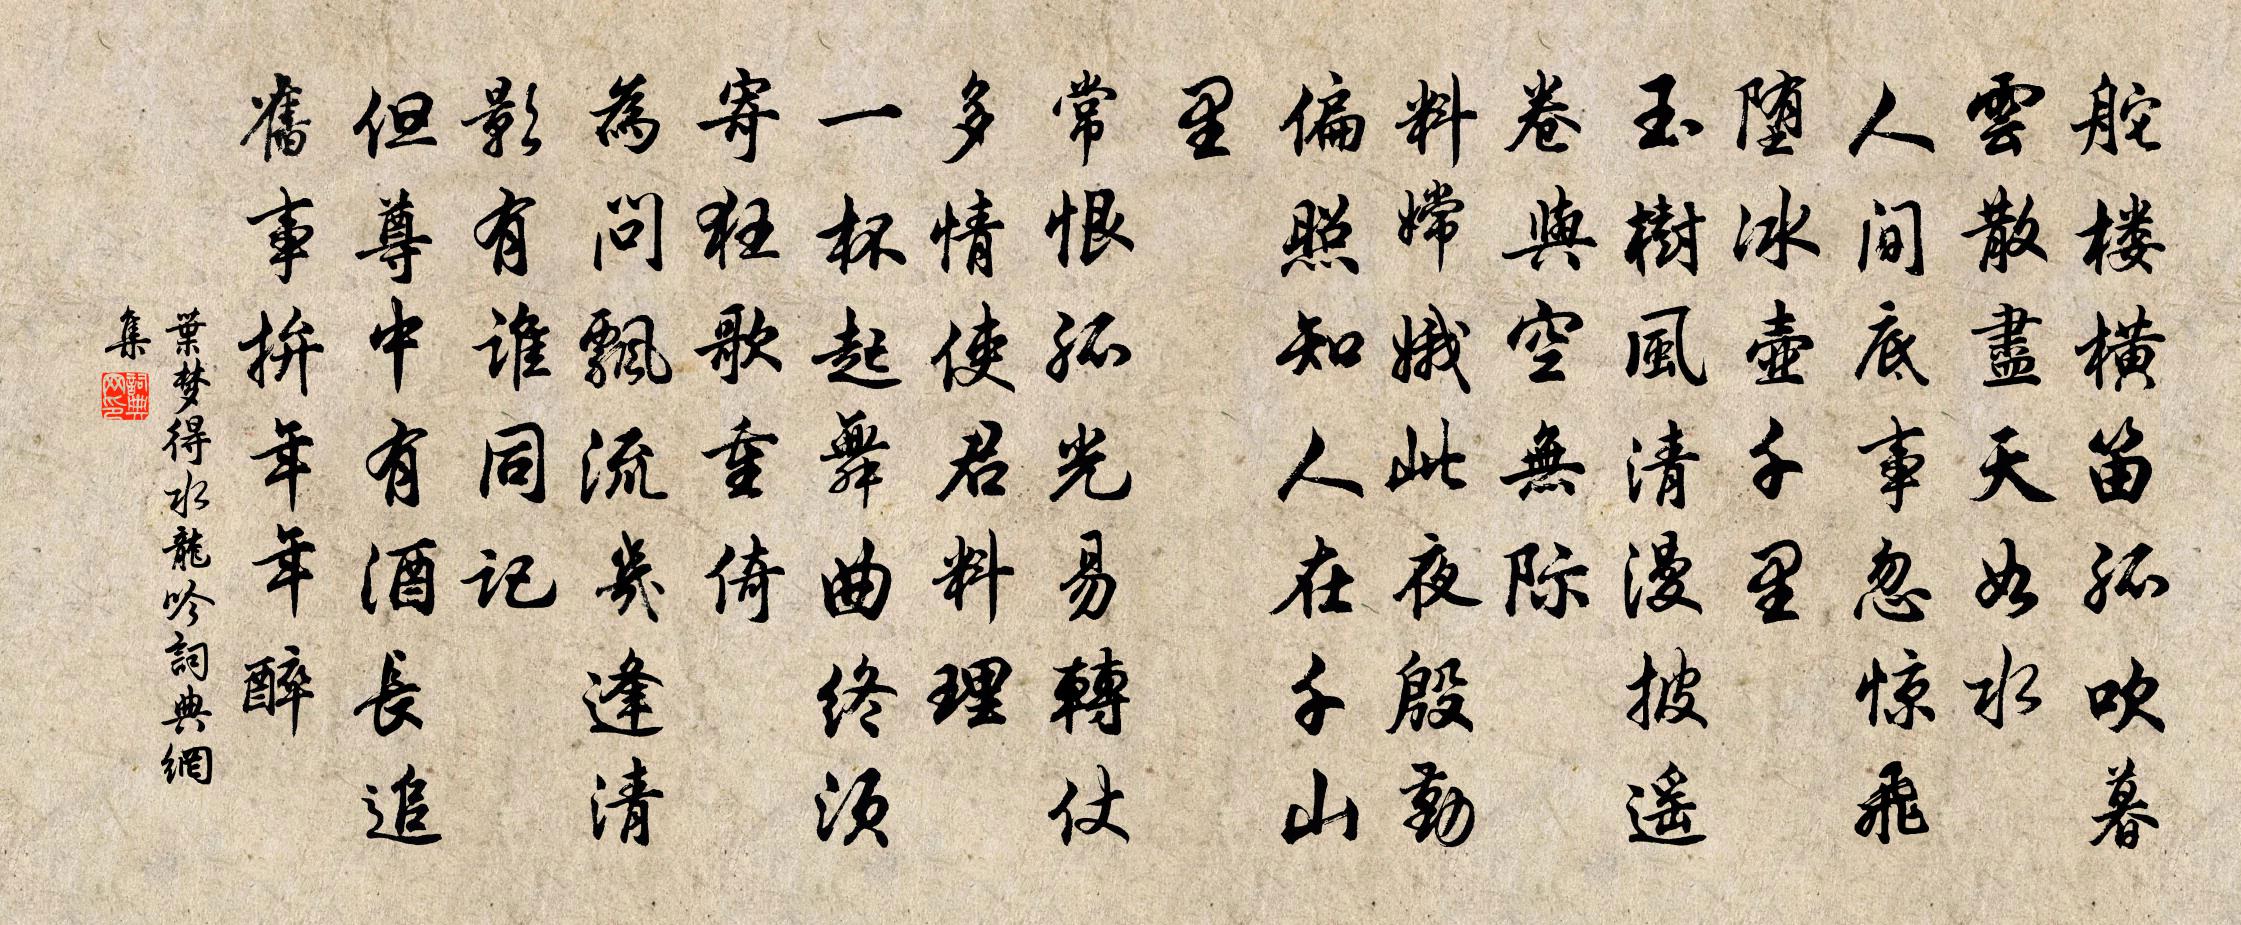 舵楼橫笛孤吹暮
雲散盡天如水
人间底事忽惊飛
堕冰壺千里
玉樹風清漫披遥
卷與空無际
料嫦娥此夜殷勤
偏照知人在千山
里
常恨孤光易轉仗
多情使君料理
一杯起舞曲终须
寄狂歌重倚
為问飄流幾逢清
影有谁同记
但尊中有酒長追
舊事拚年年醉
葉梦得水龍吟詞典網
集
詞典
网印